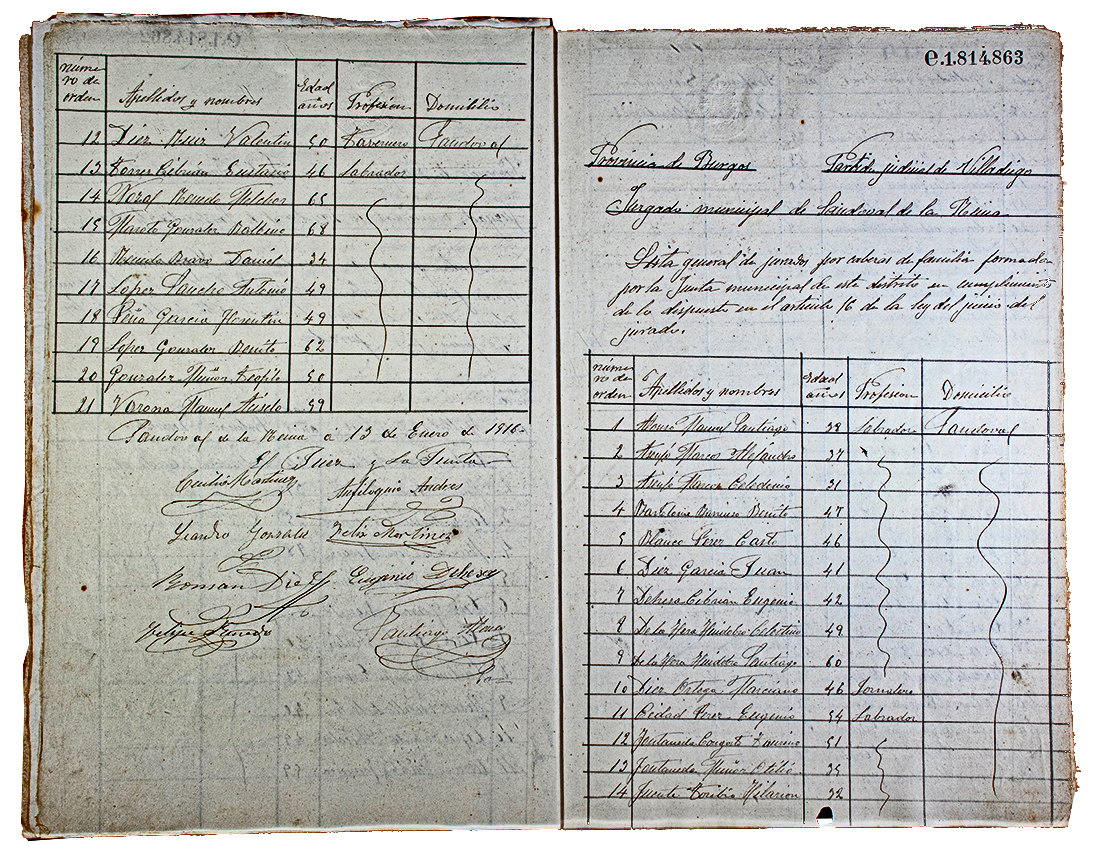 núme-
ro de
orden
Apellidos y nombres
Edad
años
Profesion
Domicilio
12 Diez Ruiz Valentin 50 Tavernero Sandoval
13 Torres Cibrián Eustasio 46 Labrador
14 Renedo Melchor 65
15 Maroto Gonzalez Balbino 68
16 Renedo Bravo Daniel 34
17 Lopez Sancho Antonio 49
18 Peña Garcia Florentin 49
19 Lopez Gonzalez Benito 62
20 Gonzalez Muñoz Teofilo 50
21 Varona Manuel 59
Sandoval de la Reina á 13 de Enero de 1916
El Juez y La Junta
Cecilio Martinez
Antiloquio Andres
Leandro Gonzalez Felix Martinez
Roman Diez Eugenio Dehesa
Felipe
Santiago Alonso
e.1.814.863
Provincia de Burgos Partido judicial de Villadiego
Juzgado municipal de Sandoval de la Reina
Lista general de jurados por cabezas de familia formada
por la Junta municipal de este distrito en cumplimiento
de lo dispuesto en el articulo 16 de la ley del juicio del
jurado.
núme-
ro de
orden
Apellidos y nombres
Edad
años
Profesion
Domicilio
1 Alonso Manuel Santiago 38 Labrador Sandoval
2 Marcos Alejandro 37
3 Celedonio 31
4 Barriuso Benito 47
5 Blanco Perez Casto 46
6 Diez Garcia Juan 41
7 Dehesa Cibrian Eugenio 42
8 De la Hera Huidobro Celestino 49
9 De la Hera Huidobro Santiago 60
10 Diez Ortega Marciano 46 Jornalero
11 Cidad Perez Eugenio 54 Labrador
12 Fontaneda 51
13 Fontaneda Muñoz Otilio 35
14 Fuente Toribio Hilarion 32